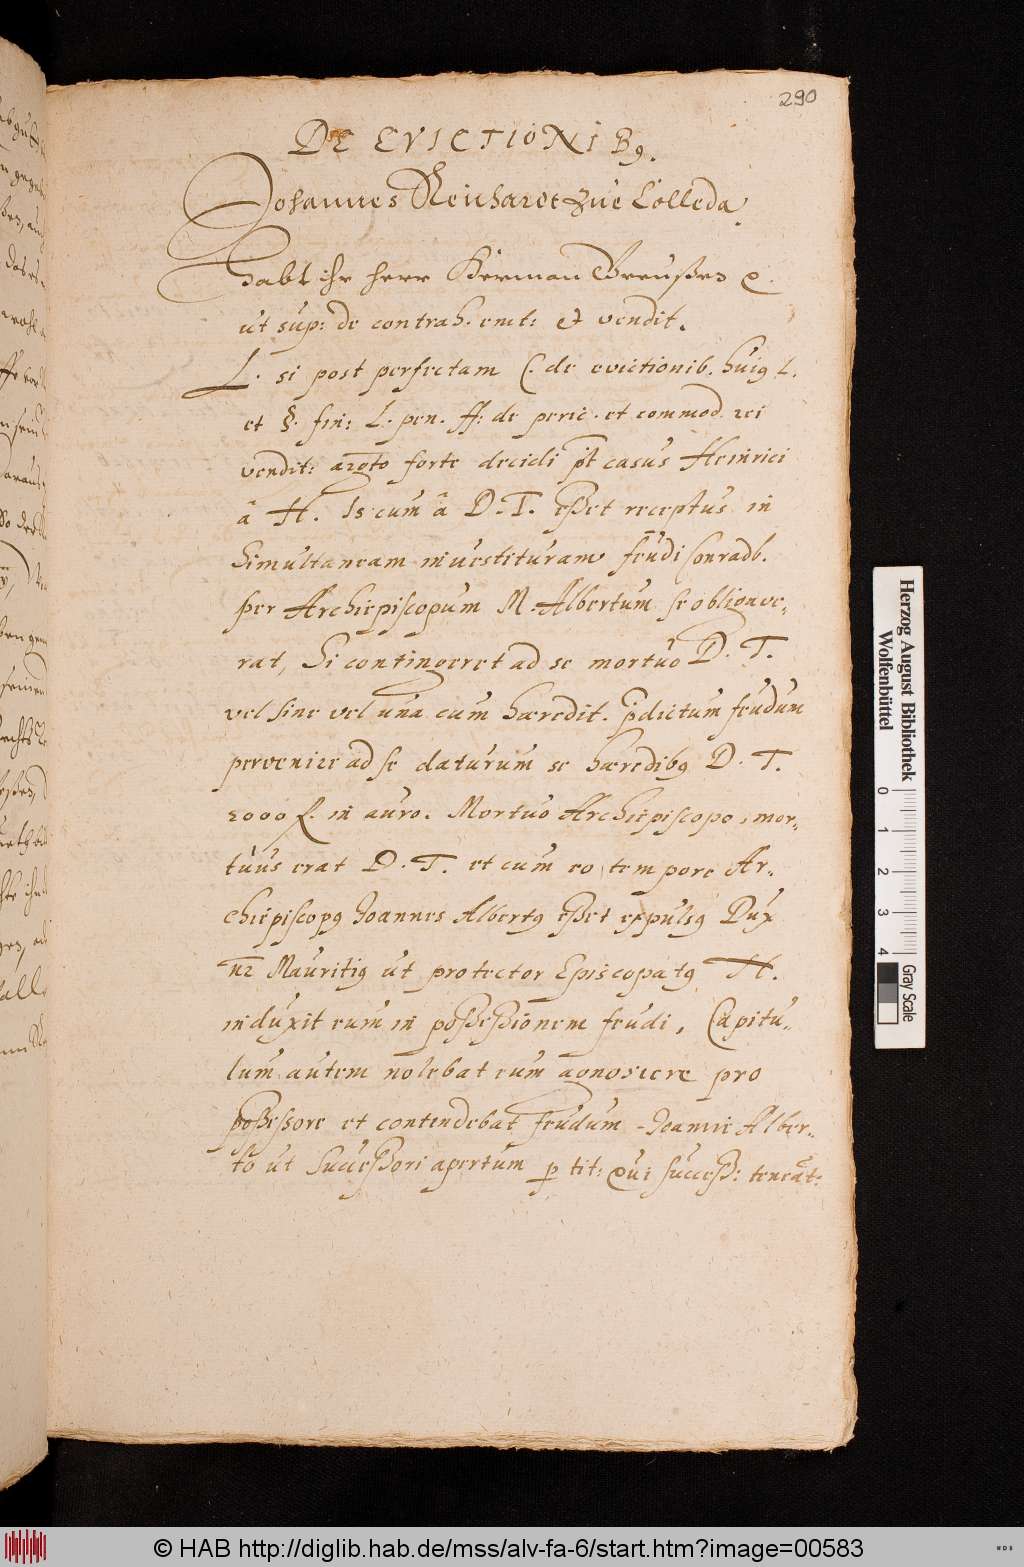 290
DE EVICTIONIBq.
Johannes Reichardt zue Cölleda.
Habt ihr herr Herman Greußen ꝛc.
ut sup: de contrah. emt: et vendit.
L. si post perfectam C. de evictionib. huiq L.
et §. fin: L. pen. ff: de peric. et commod. rei
vendit: forte decidi pt casus Heinrici
â H. Is cum â D. T. eßet receptus in
Simultaneam investituram feudi Conradb.
per Archiepiscopum M. Albertum se obligave-
rat, Si contingeret ad se mortuo D. T.
vel sine vel una cum hæredit. p̄dictum feudum
pervenire ad se daturum se hæredibq D. T.
2000 f. in auro. Mortuo Archiepiscopo, mor-
tuus erat D. T. et cum eo tempore Ar-
chiepiscopq Joannes Albertq eßet expulsq Dux
nr̄ Mauritiq ut protector Episcopatq H.
induxit eum in poßeßionem feudi, Capitu-
lum autem nolebat eum agnoscere pro
poßessore et contendebat feudum Joanni Alber-
to ut Succeßori apertum p tit: qui succeß: teneāt:
Herzog August Bibliothek
Wolfenbüttel
0 1 2 3 4
Gray Scale
© HAB http://diglib.hab.de/mss/alv-fa-6/start.htm?image=00583